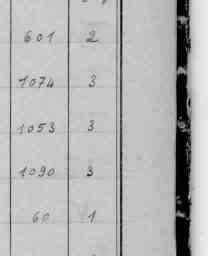 601 2
1074 3
1053 3
1090 3
60 1